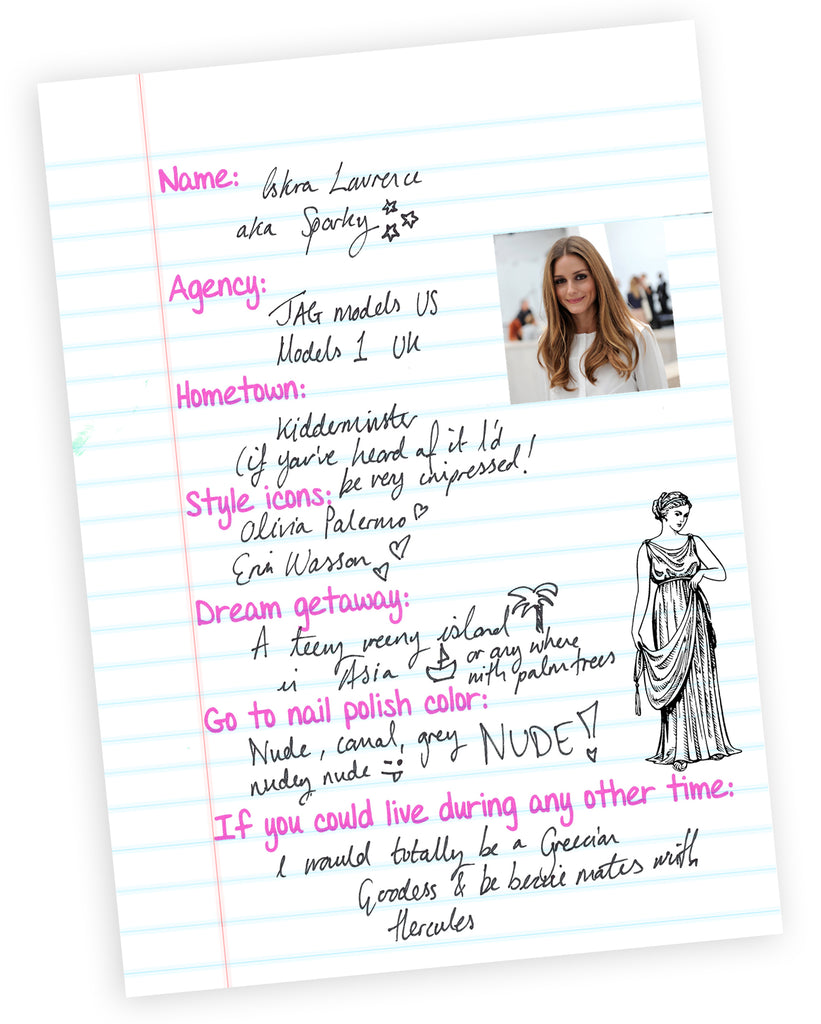 Name: Iskra Lawrence
aka Sparky
Agency:
JAG models US
Models 1 UK
Hometown:
Kidderminster
(if you've heard of it I'd
be very impressed!
Style icons:
Olivia Palermo
Erin Wasson
Dream getaway:
A teeny weeny island
in Asia or any where
with palm trees
Go to nail polish color:
Nude, camal, grey NUDE!
nudey nude
If you could live during any other time:
I would totally be a Greecian
Goodess & be bezzie mates with
Hercules